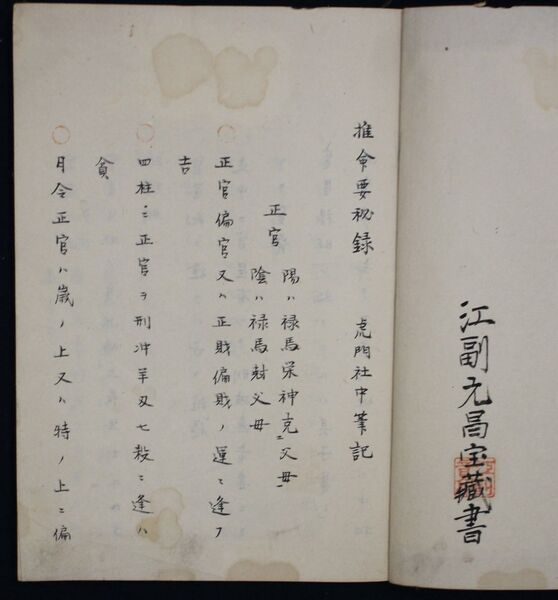 江副元昌宝藏書
推命要秘録 虎門社中筆記
正官
陽ハ禄馬栄神克父母
陰ハ禄馬財父母
○正官偏官又ハ正財偏財ノ運ニ逢フ
吉
○四柱ニ正官ヲ刑冲羊刃七殺ニ逢ハ
貧
○月令正官ハ歳ノ上又ハ時ノ上ニ偏